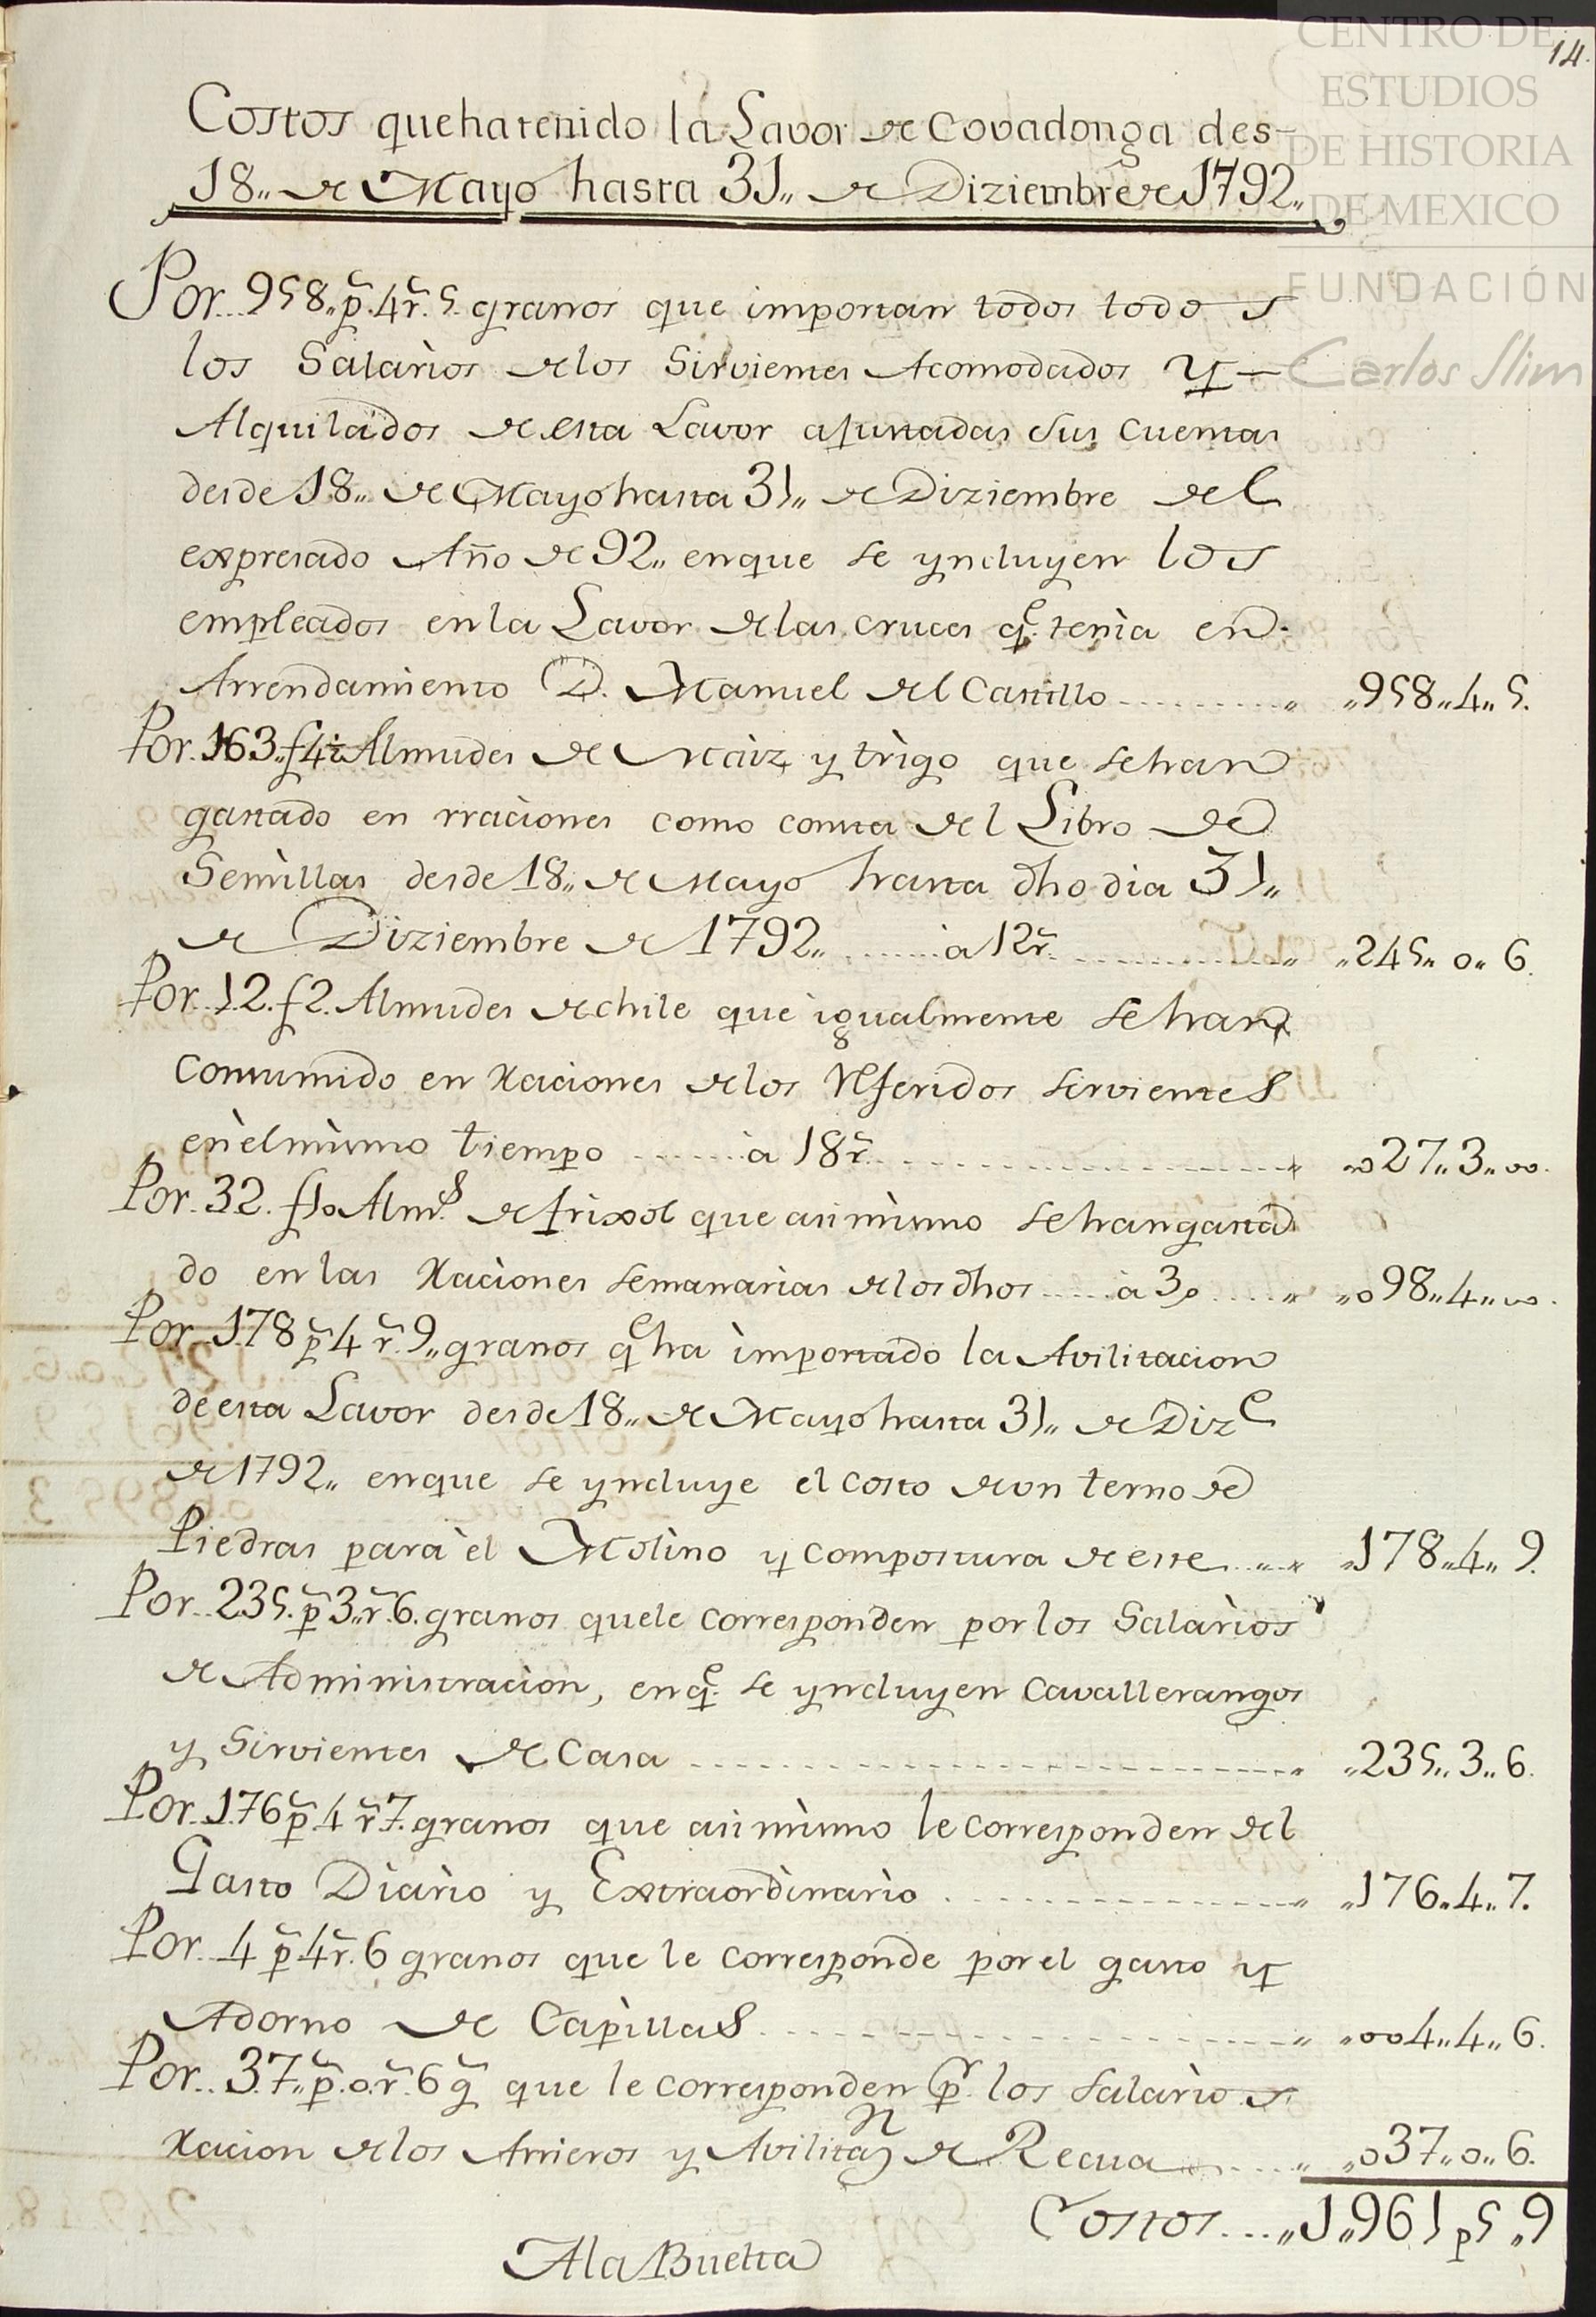 CENTRO DE
ESTUDIOS
DE HISTORIA
DE MEXICO
FUNDACIÓN
Carlos Slim
14.
Costos que ha tenido la Lavor de Covadonga des-
18,, de Mayo hasta 31,, de Diziembre de 1792,,
Por.. 958,, p̃. 4 r̃. 5. granos que importan todos todos
los Salàrios de los Sirvientes Acomodados y—
Alquilados de esta Lavor ajustadas sus cuentas
desde 18,, de Mayo hasta 31,, de Diziembre del
expresado Año de 92,, en que se yncluyen los
empleados en la Lavor de las Cruces q.e tenìa en
Arrendamiento D. Manuel del Castillo .......... ,, ,,958,,4,,5.
Por. 163,, f 4½ Almudes de Màiz, y trìgo que se han
gastado en rraciones como consta del Libro de
Semìllas desde 18,, de Mayo hasta dho dia 31,,
de Diziembre de 1792,, ....... à 12 r̃. .............. ,, ,,245,, 0,, 6.
Por. 12. f 2. Almudes de chile que igualmente se han
consumido en Raciones de los Referidos sirvientes
en èl mismo tiempo ....... à 18 r̃. .................. ,, ,,027,, 3,, 00.
Por. 32. f 10 Alm.s de frixol que asimismo se han gasta
do en las Raciones semanarias de los dhos ..... à 3 p ..... ,, ,,098,,4,,00.
Por. 178 p̃ 4 r̃. 9,, granos q.e ha importado la Avilitacion
de esta Lavor desde 18,, de Mayo hasta 31,, de Diz.e
de 1792,, en que se yncluye el costo de un terno de
Piedras para èl Molìno y compostura de este ..... ,, ,,178,,4,, 9.
Por.. 235. p̃ 3,, r̃. 6. granos que le corresponden por los Salàrios
de Administracion, en q.e se yncluyen Cavallerangos
y Sirvientes de Casa .......................... ,, ,,235,, 3,, 6.
Por. 176 p̃. 4 r̃ 7. granos que asimismo le corresponden del
Gasto Diàrio y Extraordìnarìo .................. ,, ,,176,,4,, 7.
Por. 4 p̃ 4 r̃. 6 granos que le corresponde por el gasto y
Adorno de Capìllas ........................... ,, ,,004,,4,, 6.
Por.. 37,, p̃. 0. r̃. 6 g̃ que le corresponden p.r los salàrios
Racion de los Arrieros y Avilitaz.n de Recua ..... ,, ,,037,,0,, 6.
Costos .... ,,1,,961 p 5,, 9
A la Buelta